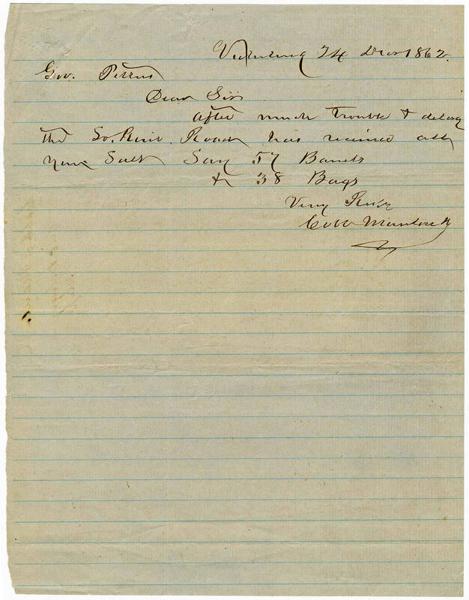 Vicksburg 24 Decr 1862.
Gov. Pettus
Dear Sir
After much trouble & delay
the So. Rail Road has received all
your Salt Say 57 Barrels
& 38 Bags
Very Resp
Cobb